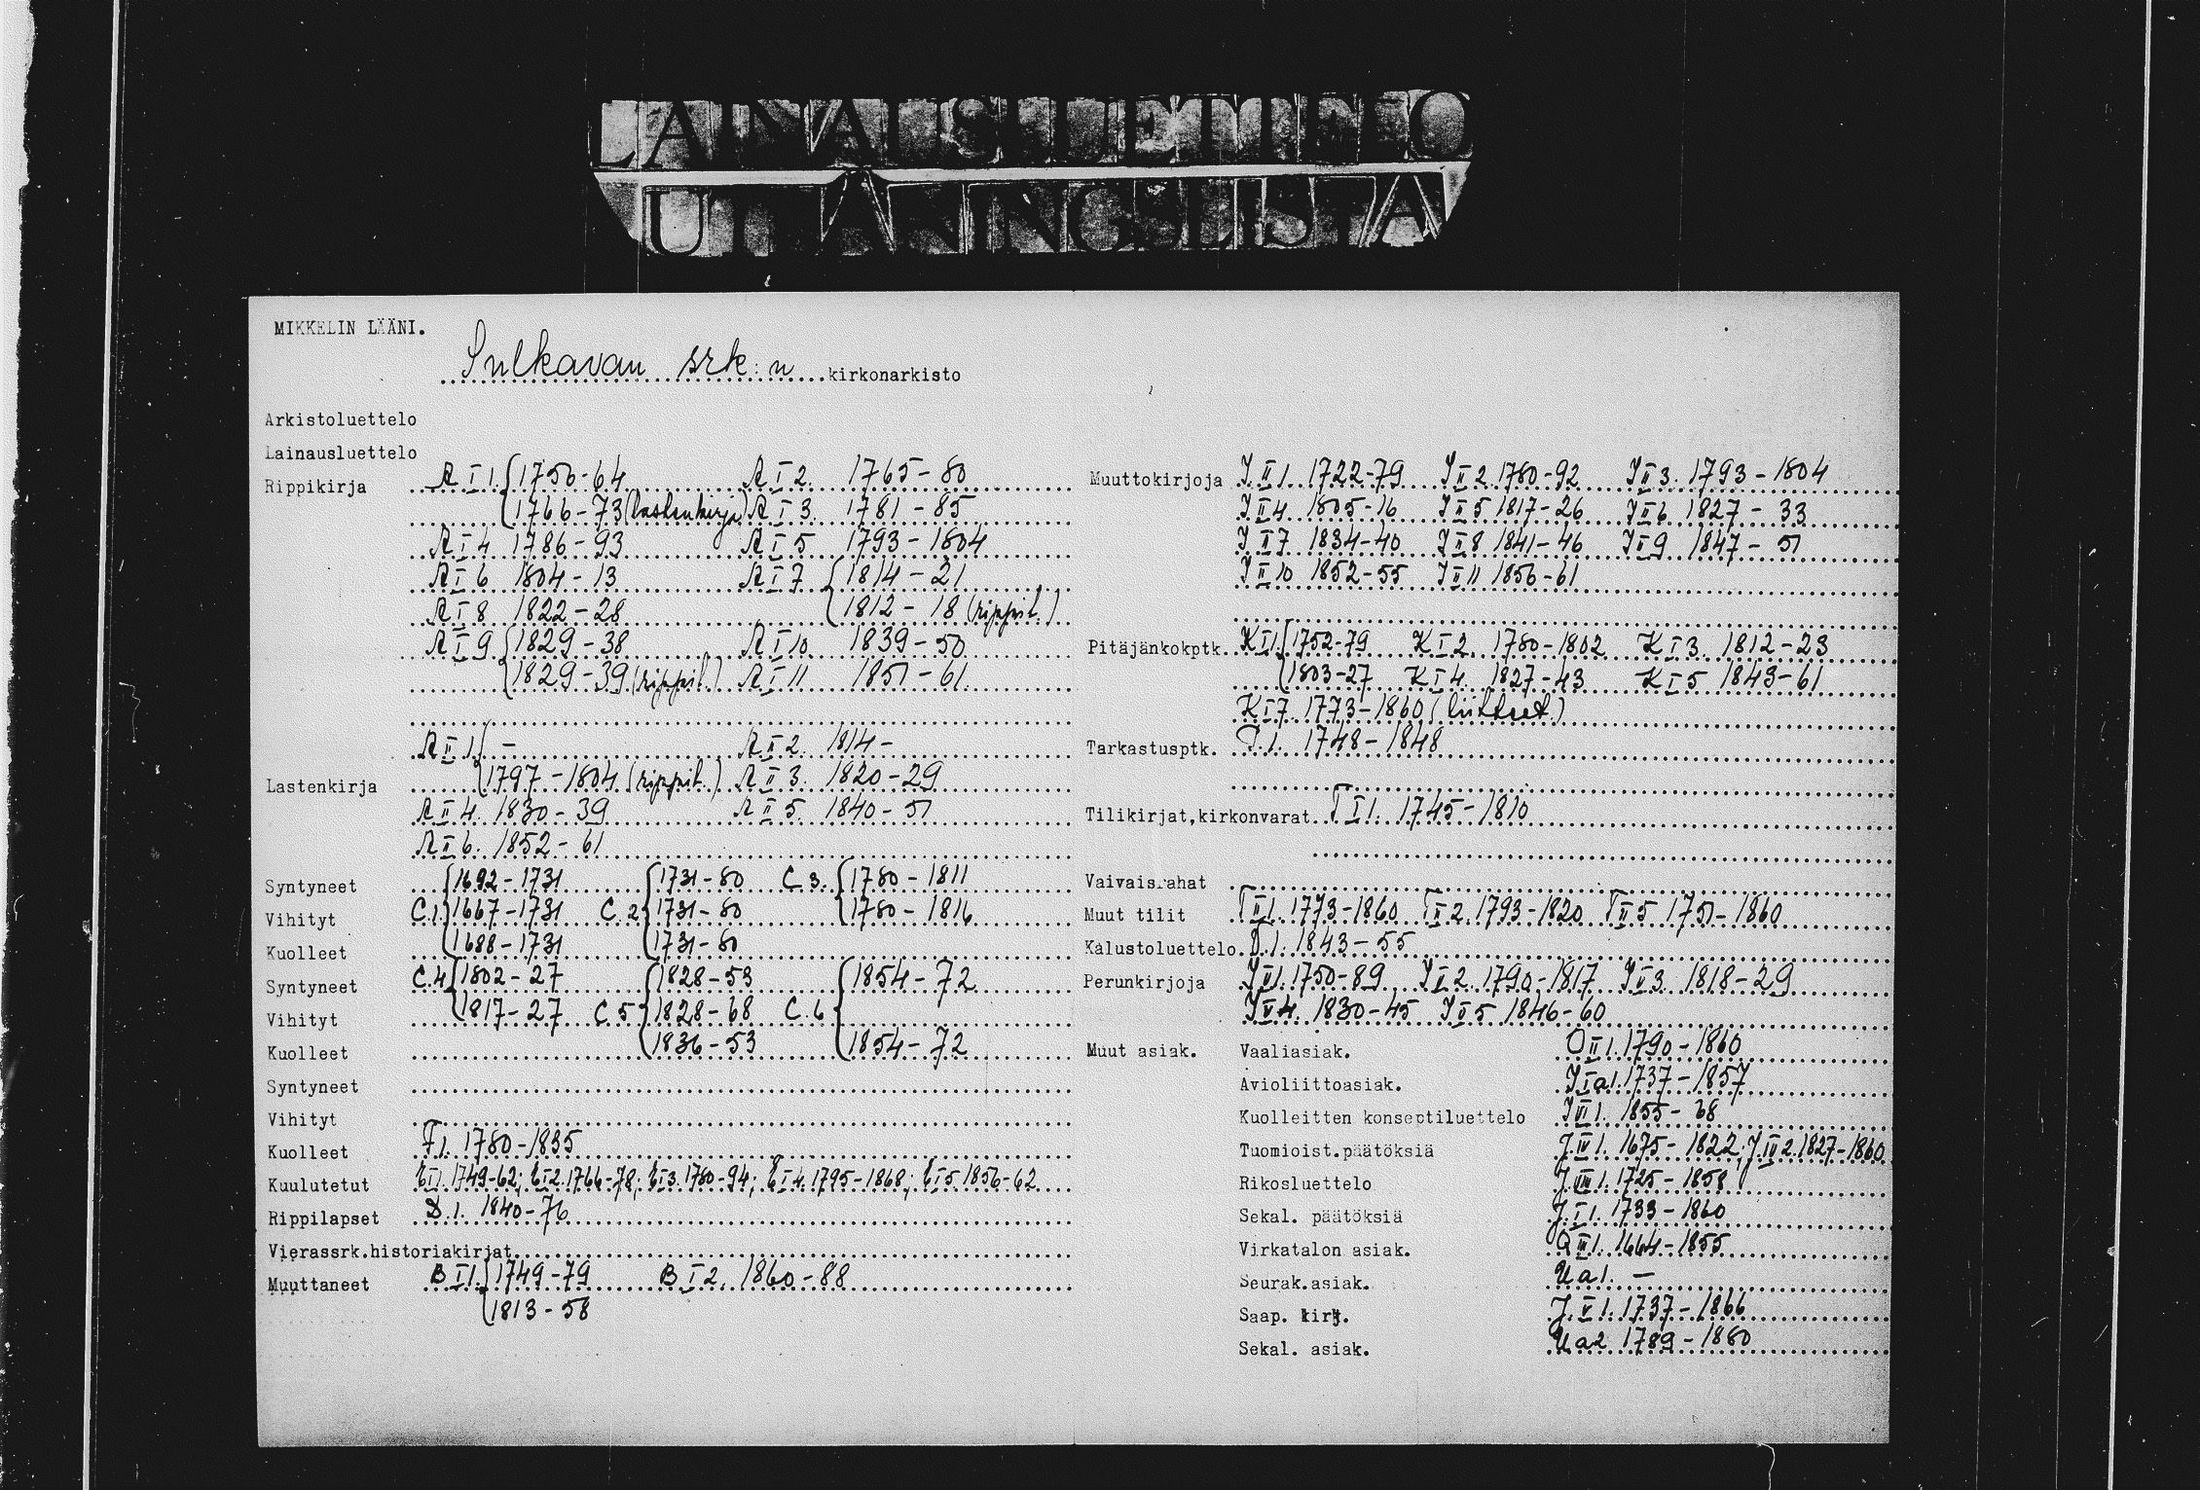 LAINAUSLUETTELO
UTLÅNINGSLISTA
MIKKELIN LÄÄNI.
Sulkavan srk:n kirkonarkisto
Arkistoluettelo
Lainausluettelo
Rippikirja A I 1. 1756-64 A I 2. 1765-80
1766-73 (lastenkirja) A I 3. 1781-85
A I 4 1786-93 A I 5 1793-1804
A I 6 1804-13 A I 7 1814-21
A I 8 1822-28 1812-18 (rippil.)
A I 9 1829-38 A I 10 1839-50
1829-39 (rippil.) A I 11 1851-61
A II 1. - A II 2. 1814-
Lastenkirja 1797-1804 (rippil.) A II 3. 1820-29
A II 4. 1830-39 A II 5. 1840-51
A II 6. 1852-61
Syntyneet 1692-1731 1731-80 C 3. 1780-1811
Vihityt C.1. 1667-1731 C.2 1731-80 1780-1816
Kuolleet 1688-1731 1731-80
Syntyneet C.4 1802-27 1828-53 1854-72
Vihityt 1817-27 C 5 1828-68 C.6
Kuolleet 1836-53 1854-72
Syntyneet
Vihityt
Kuolleet F1. 1780-1835
Kuulutetut E I 1. 1749-62; E I 2. 1766-78; E I 3. 1780-94; E I 4. 1795-1868; E I 5. 1856-62
Rippilapset D.1. 1840-76
Vierassrk.historiakirjat
Muuttaneet B I 1. 1749-79 B I 2. 1860-88
1813-58
Muuttokirjoja J II 1. 1722-79 J II 2. 1780-92 J II 3. 1793-1804
J II 4 1805-16 J II 5 1817-26 J II 6 1827-33
J II 7 1834-40 J II 8 1841-46 J II 9 1847-51
J II 10 1852-55 J II 11 1856-61
Pitäjänkokptk. K I 1. 1752-79 K I 2. 1780-1802 K I 3. 1812-23
1803-27 K I 4. 1827-43 K I 5 1843-61
K I 7. 1773-1860 (liitteet.)
Tarkastusptk. 1748-1848
Tilikirjat,kirkonvarat T I 1. 1745-1810
Vaivaisrahat
Muut tilit T II 1. 1773-1860 T II 2. 1793-1820 T II 5 1751-1860
Kalustoluettelo 1. 1843-55
Perunkirjoja 1750-89 1790-1817 1818-29
1830-45 1846-60
Muut asiak. Vaaliasiak. O II 1. 1790-1860
Avioliittoasiak. 1737-1857
Kuolleitten konseptiluettelo 1855-68
Tuomioist.päätöksiä 1675-1822; 1827-1860
Rikosluettelo J VIII 1. 1725-1858
Sekal. päätöksiä J I 1. 1733-1860
Virkatalon asiak. 1664-1855
Seurak.asiak. U a 1. -
Saap. kirj. J V 1. 1737-1866
Sekal. asiak. U a 2 1789-1880